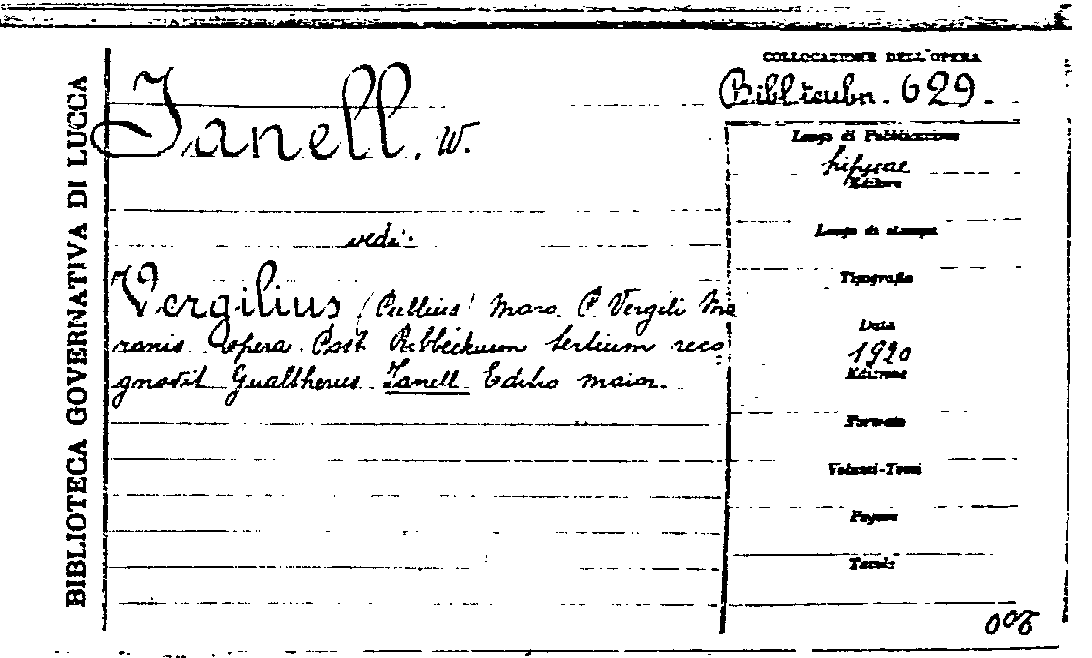 BIBLIOTECA GOVERNATIVA DI LUCCA
Janell. W.
vedi:
Vergilius (Publius) Maro P. Vergili Ma
ronis opera Post Ribbeckium tertium reco
gnovit Gualtherus Janell Editio maior.
COLLOCAZIONE DELL'OPERA
Bibl. 629.
Luogo di Pubblicazione
Lipsiae
Editore
Luogo di stampa
Tipografia
Data
1920
Edizione
Formato
Volumi-Tomi
Pagine
Tavole